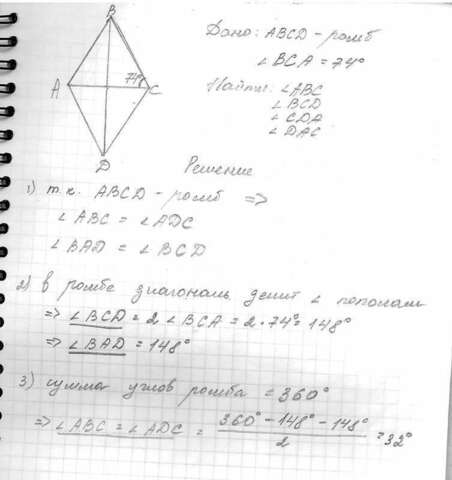 B
Дано: ABCD - ромб
∠BCA = 74°
A 74° C
Найти: ∠ABC
∠BCD
∠CDA
∠DAC
D
Решение
1) т.к. ABCD - ромб =>
∠ABC = ∠ADC
∠BAD = ∠BCD
2) В ромбе диагональ делит ∠ пополам
=> ∠BCD = 2∠BCA = 2·74° = 148°
=> ∠BAD = 148°
3) сумма углов ромба = 360°
=> ∠ABC = ∠ADC = (360° - 148° - 148°)/2 = 32°